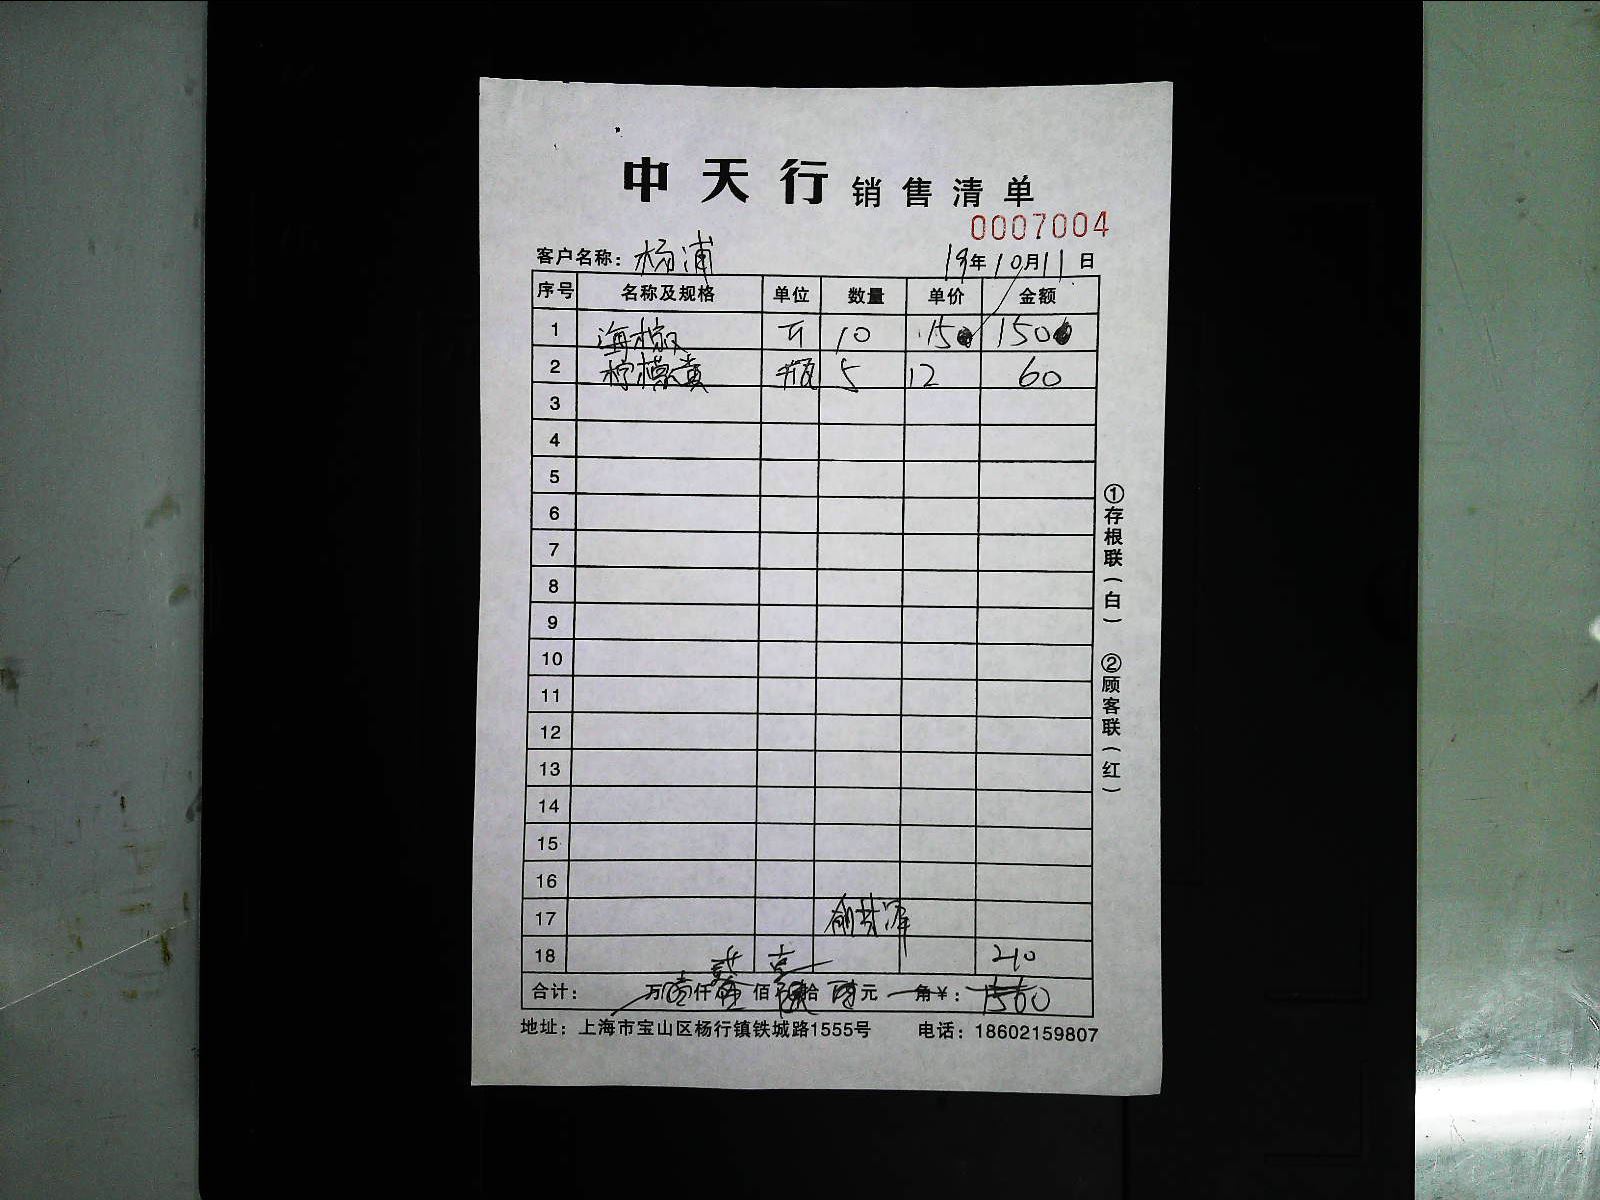 中天行 销售清单
0007004
客户名称：杨浦 19年10月11日
序号 名称及规格 单位 数量 单价 金额
1 海椒 10 150 1500
2 柠檬黄 瓶 5 12 60
3
4
5
6
7
8
9
10
11
12
13
14
15
16
17
18 210
合计： 万 仟 佰 拾 元 角 ¥：1560
地址：上海市宝山区杨行镇铁城路1555号 电话：18602159807
①存根联（白）
②顾客联（红）